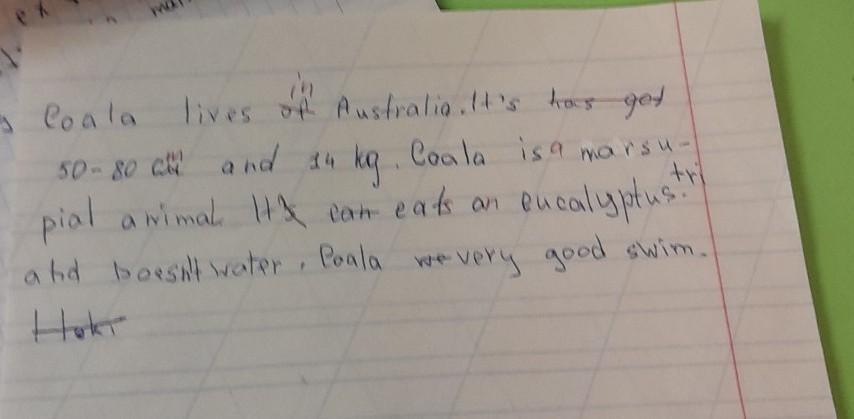 in
Coala lives of Australia. It's has got
50-80 cm and 14 kg. Coala is a marsu-
tri
pial animal It can eats an eucalyptus.
and doesn't water. Coala we very good swim.